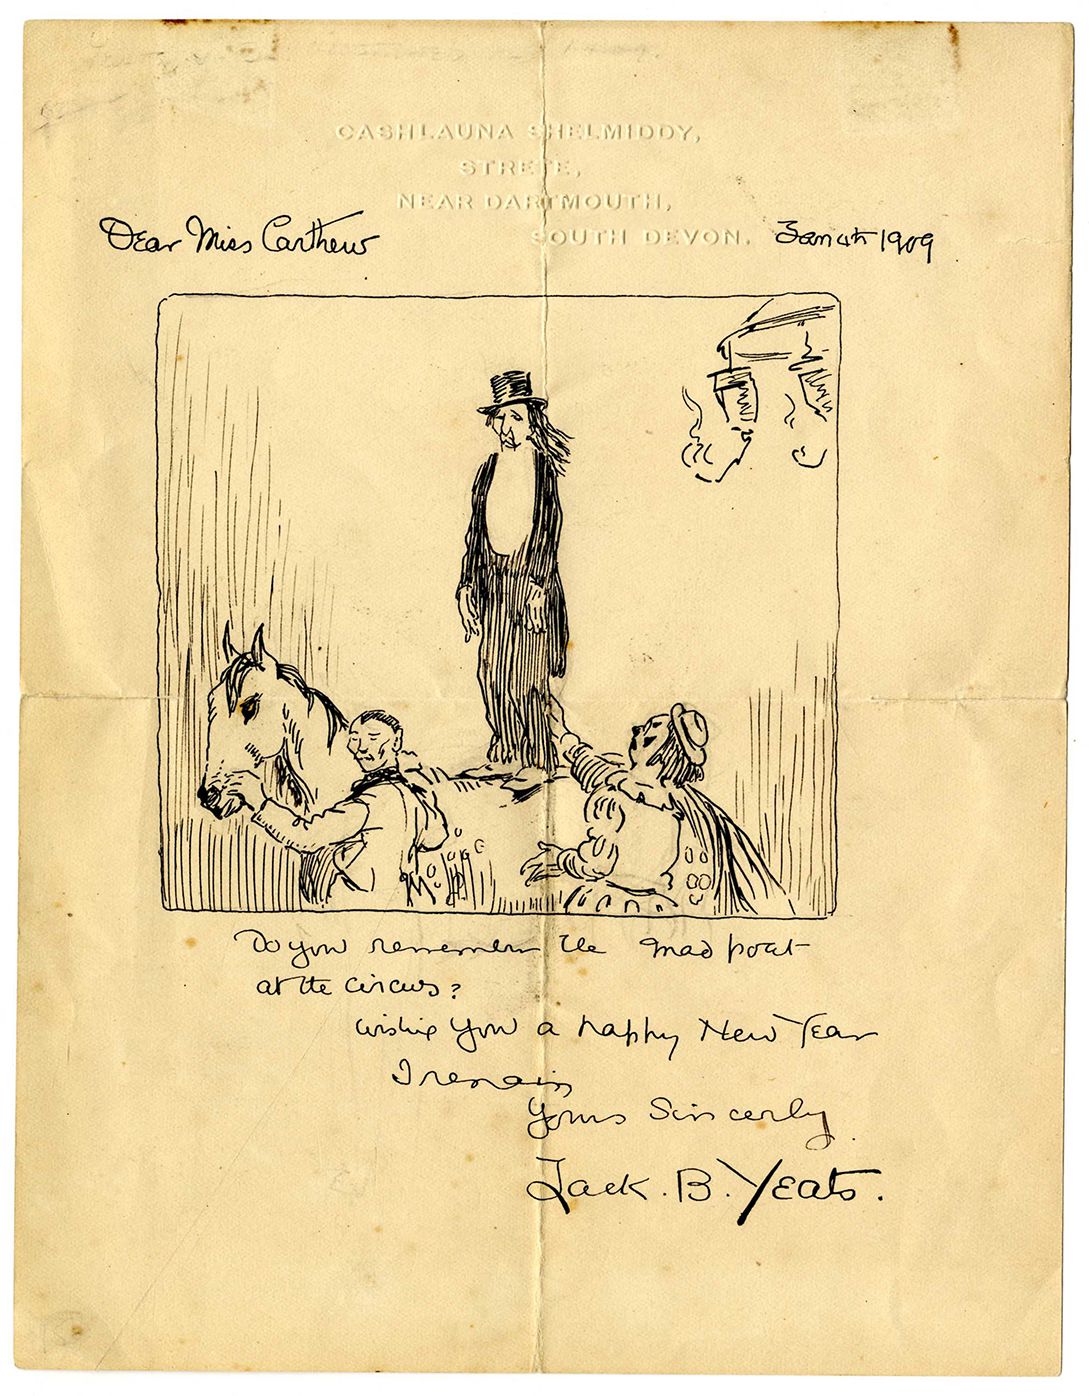 CASHLAUNA SHELMIDDY,
STRETE,
NEAR DARTMOUTH,
SOUTH DEVON.
Dear Miss Carthew Jan 4th 1909
Do you remember the mad poet
at the circus?
wishing you a happy New Year
I remain
Yours Sincerly
Jack. B. Yeats.